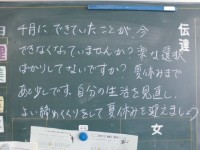 伝達
4月にできていたことが、今
できなくなっていませんか?楽な選択
ばかりしてないですか?夏休みまで
あと少しです。自分の生活を見直し、
よい締めくくりをして夏休みを迎えましょう
女